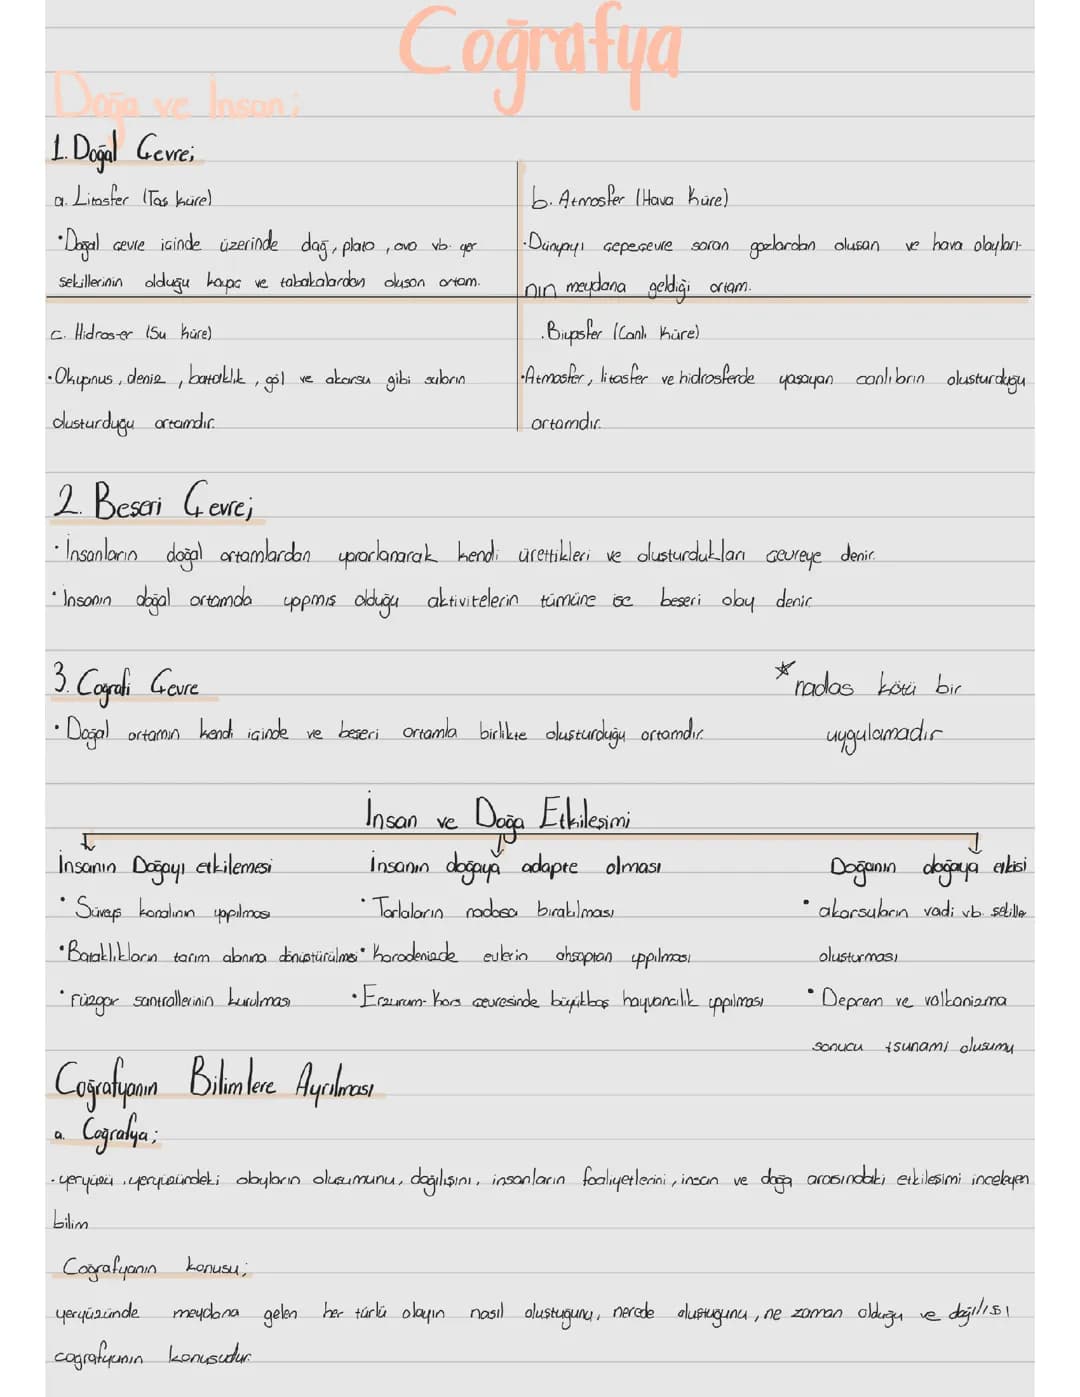 Coğrafya
Doğa ve İnsan;
1. Doğal Çevre;
a. Litosfer (Taş küre)
• Doğal çevre içinde üzerinde dağ, plato, ova vb. yer
şekillerinin olduğu kayaç ve tabakalardan oluşan ortam.
b. Atmosfer (Hava Küre)
• Dünyayı çepeçevre saran gazlardan oluşan ve hava olayları-
nın meydana geldiği ortam.
c. Hidros-er (Su küre)
• Okyanus, deniz, bataklık, göl ve akarsu gibi suların
oluşturduğu ortamdır.
. Biyosfer (Canlı Küre)
• Atmosfer, litosfer ve hidrosferde yaşayan canlıların oluşturduğu
ortamdır.
2. Beşeri Çevre;
• İnsanların doğal ortamlardan yararlanarak kendi ürettikleri ve oluşturdukları çevreye denir.
• İnsanın doğal ortamda yapmış olduğu aktivitelerin tümüne ise beşeri olay denir
3. Coğrafi Çevre
• Doğal ortamın kendi içinde ve beşeri ortamla birlikte oluşturduğu ortamdır.
* nadas kötü bir
uygulamadır
İnsan ve Doğa Etkileşimi
İnsanın Doğayı etkilemesi
• Süveyş kanalının yapılması
• Bataklıkların tarım alanına dönüştürülmesi
• rüzgar santrallerinin kurulması
İnsanın doğaya adapte olması
• Tarlaların nadasa bırakılması
• Karadenizde evlerin ahşaptan yapılması
• Erzurum-Kars çevresinde büyükbaş hayvancılık yapılması
Doğanın doğaya etkisi
• akarsuların vadi vb. şekiller
oluşturması
• Deprem ve volkanizma
sonucu tsunami oluşumu
Coğrafyanın Bilimlere Ayrılması
a. Coğrafya;
• yeryüzü, yeryüzündeki olayların oluşumunu, dağılışını, insanların faaliyetlerini, insan ve doğa arasındaki etkileşimi inceleyen
bilim
Coğrafyanın konusu;
yeryüzünde meydana gelen her türlü olayın nasıl oluştuğunu, nerede oluştuğunu, ne zaman olduğu ve dağılışı
coğrafyanın konusudur.